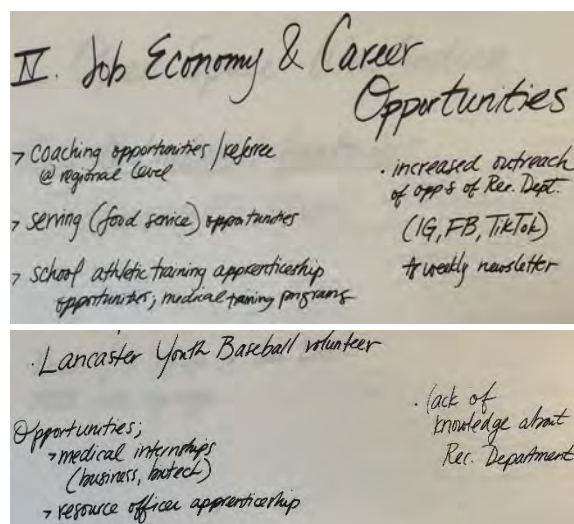 IV. Job Economy & Career
Opportunities
> coaching opportunities / referree
@ regional level
> serving (food service) opportunities
> school athletic training apprenticership
opportunities; medical training programs
· increased outreach
of opps of Rec. Dept.
(IG, FB, TikTok)
weekly newsletter
· Lancaster Youth Baseball volunteer
Opportunities;
> medical internships
(business, biotech)
> resource officer apprenticership
· lack of
knowledge about
Rec. Department